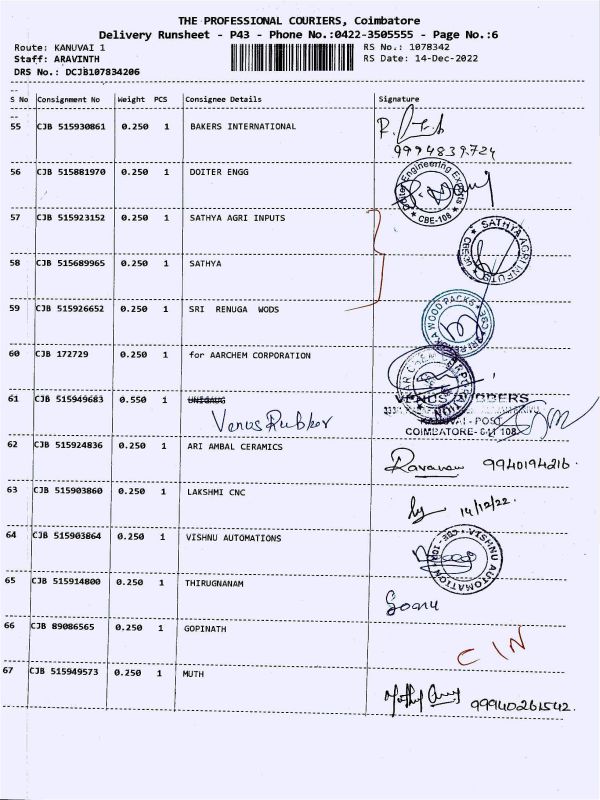 THE PROFESSIONAL COURIERS, Coimbatore
Delivery Runsheet - P43 - Phone No.:0422-3505555 - Page No.:6
Route: KANUVAI 1 RS No.: 1078342
Staff: ARAVINTH RS Date: 14-Dec-2022
DRS No.: DCJB107834206
S No Consignment No Weight PCS Consignee Details Signature
55 CJB 515930861 0.250 1 BAKERS INTERNATIONAL
9994839724
56 CJB 515881970 0.250 1 DOITER ENGG
Doiter Engineering Exports
* CBE-108 *
57 CJB 515923152 0.250 1 SATHYA AGRI INPUTS
SATHYA AGRI INPUTS
58 CJB 515689965 0.250 1 SATHYA
59 CJB 515926652 0.250 1 SRI RENUGA WODS
WOOD PACKS
60 CJB 172729 0.250 1 for AARCHEM CORPORATION
61 CJB 515949683 0.550 1 UNIGAUG
Venus Rubber
VENUS RUBBERS
KANUVAI - POST
COIMBATORE- 641 108
62 CJB 515924836 0.250 1 ARI AMBAL CERAMICS
9940194216.
63 CJB 515903860 0.250 1 LAKSHMI CNC
14/12/22.
64 CJB 515903864 0.250 1 VISHNU AUTOMATIONS
VISHNU AUTOMATION
65 CJB 515914800 0.250 1 THIRUGNANAM
66 CJB 89086565 0.250 1 GOPINATH
C I N
67 CJB 515949573 0.250 1 MUTH
99940261542.